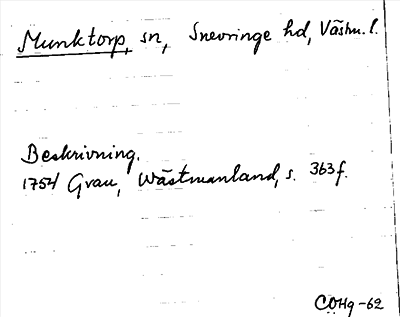 Munktorp, sn, Snevringe hd, Västm. l.
Beskrivning.
1754 Grau, Wästmanland, s. 363 f.
COHg-62